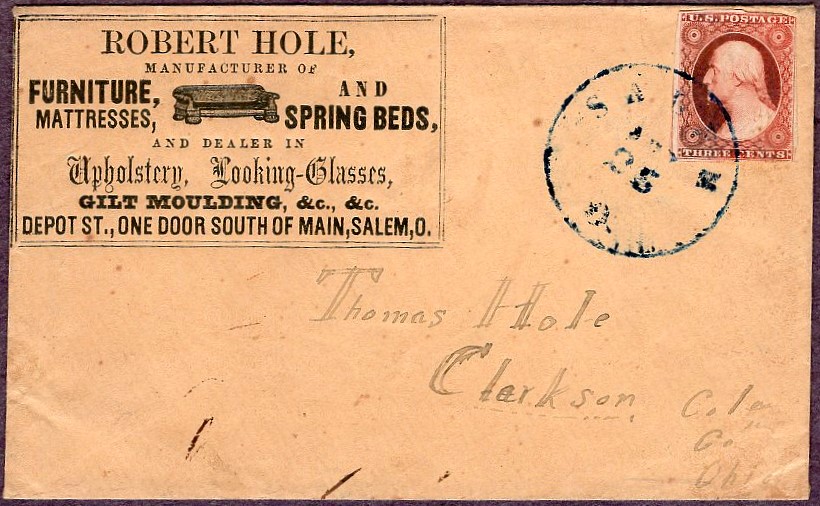 ROBERT HOLE,
MANUFACTURER OF
FURNITURE, AND
MATTRESSES, SPRING BEDS,
AND DEALER IN
Upholstery, Looking-Glasses,
GILT MOULDING, &c., &c.
DEPOT ST., ONE DOOR SOUTH OF MAIN, SALEM, O.
U.S. POSTAGE
THREE CENTS
25
Thomas Hole
Clarkson
Co
Ohio